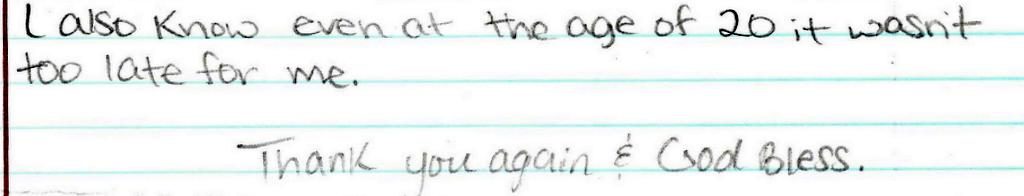 I also know even at the age of 20 it wasn't
too late for me.
Thank you again & God Bless.